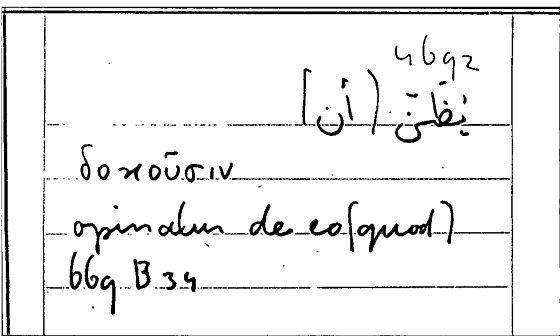 4692
يُظَنّ (أن)
δοκοῦσιν
opinatur de eo (quod)
669 B 34